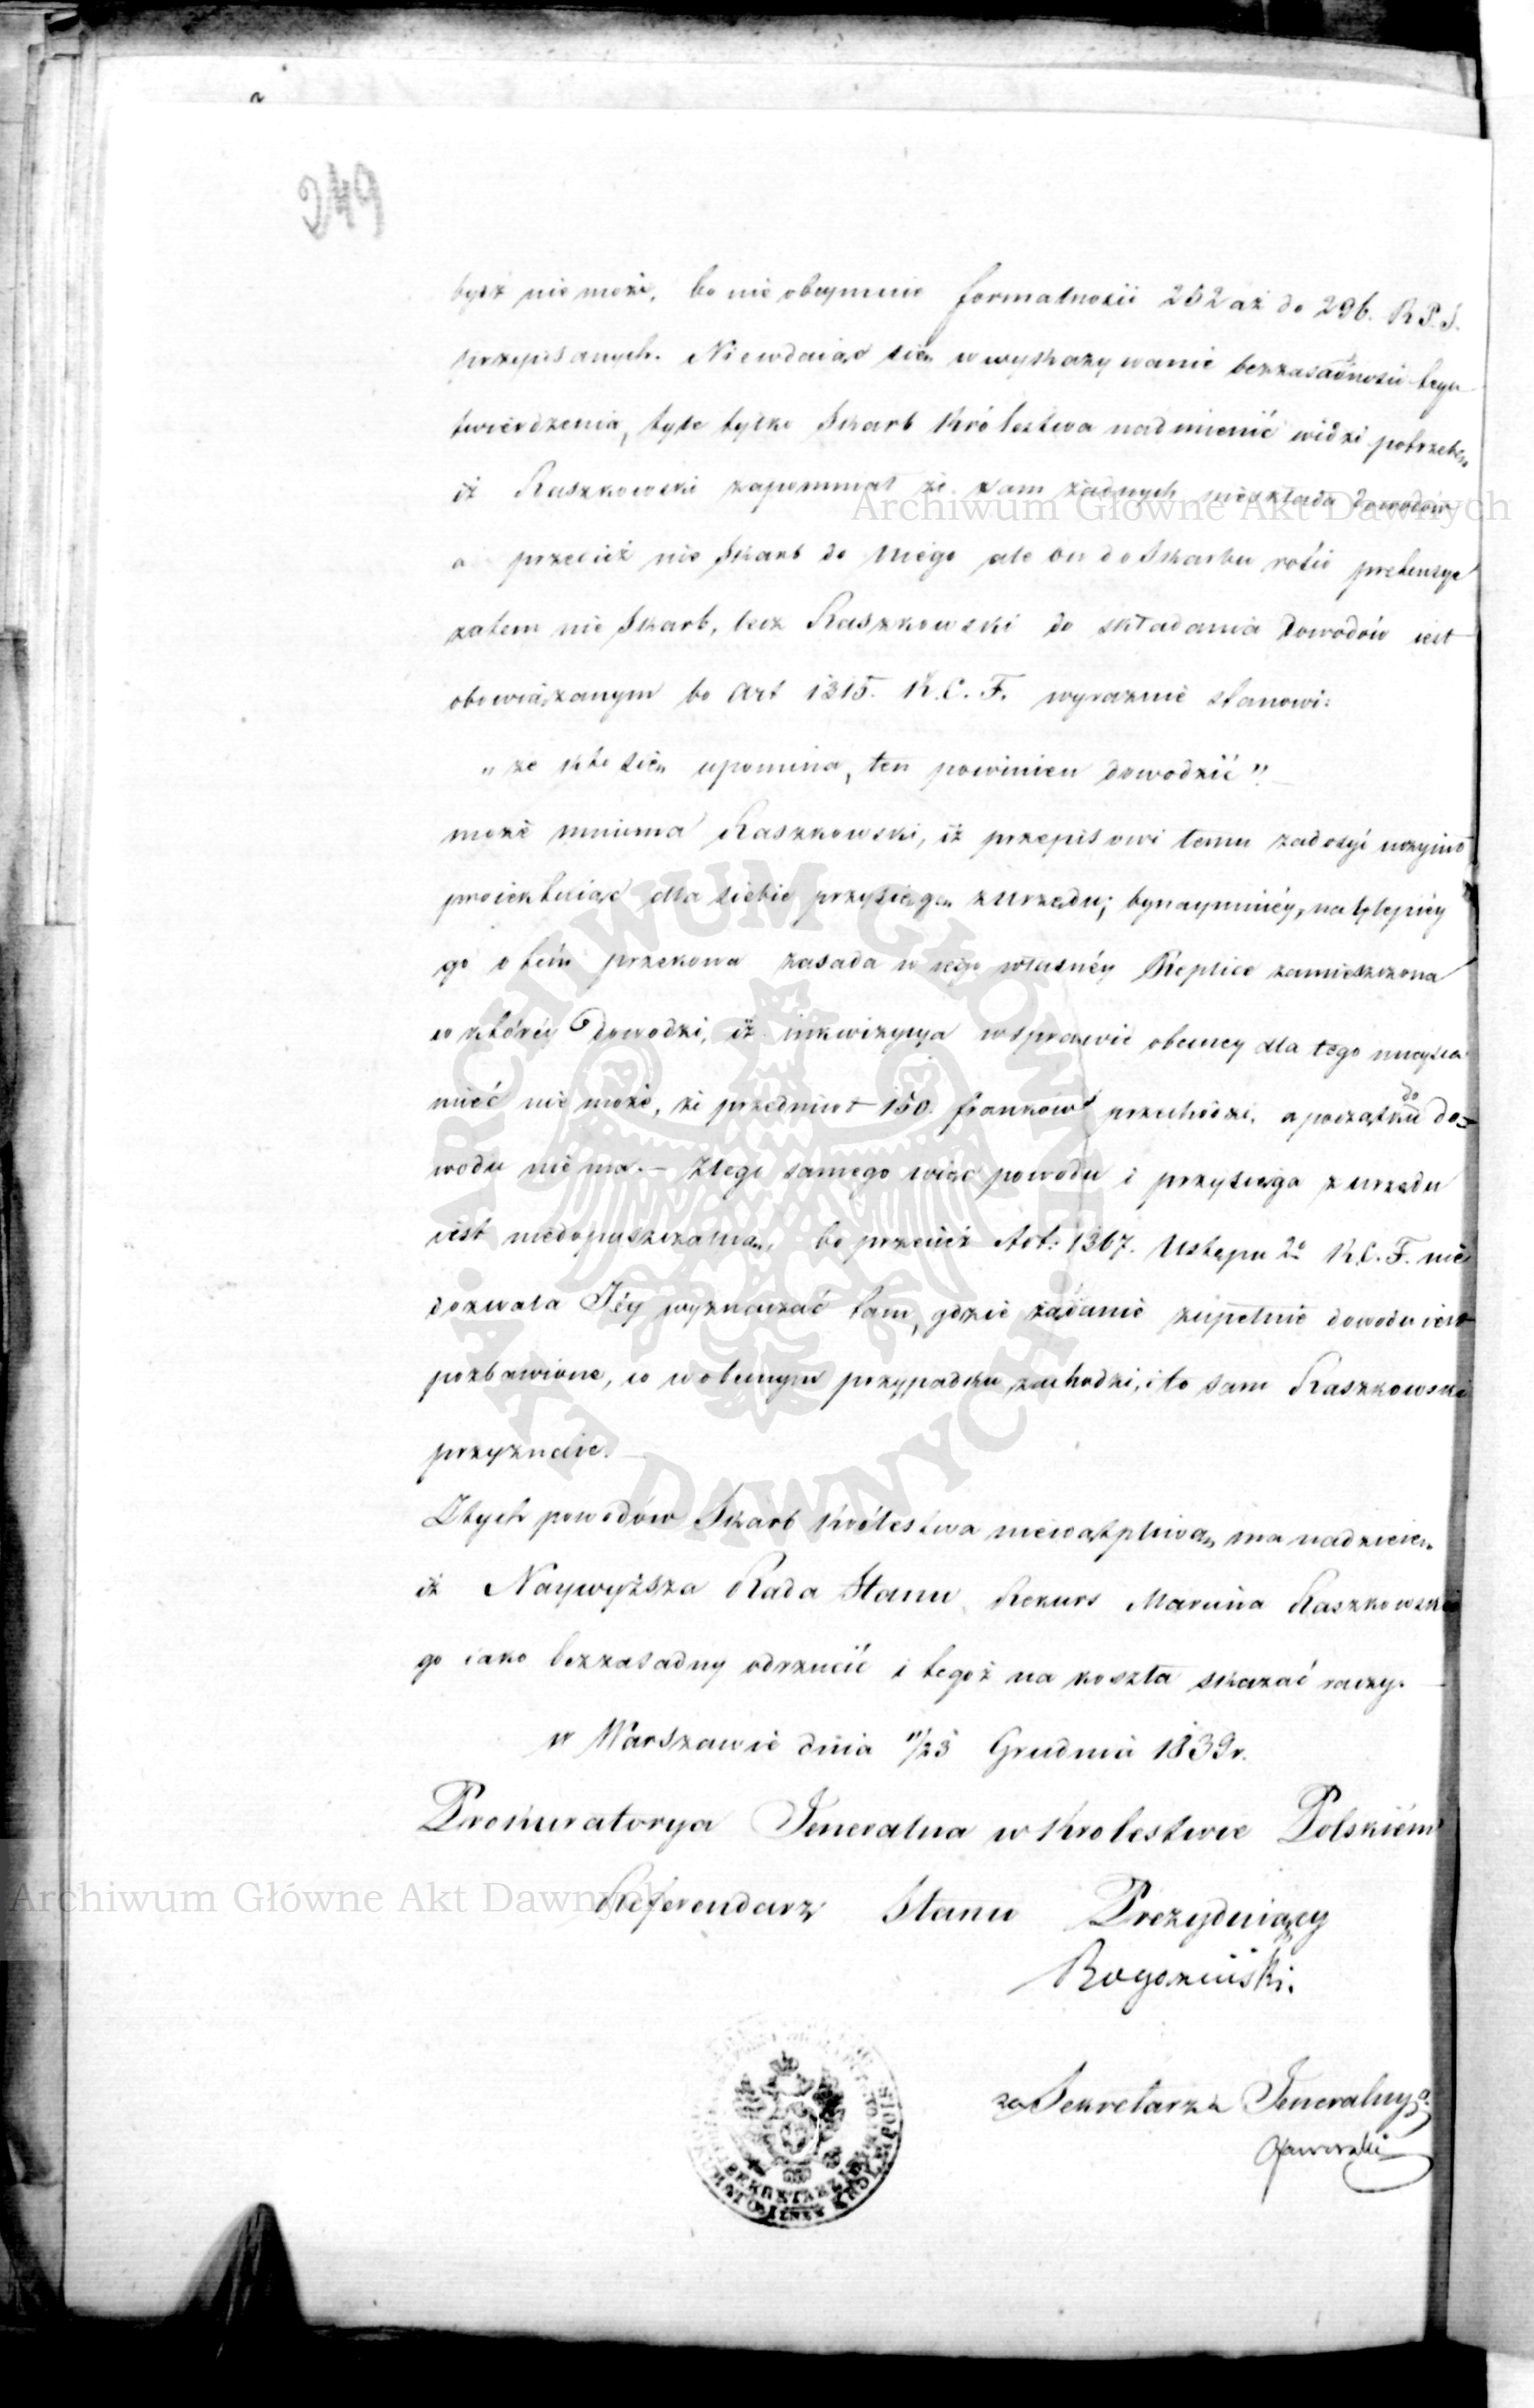 249
bydź nie może, bo nie obeymuie formalności 252 aż do 296. K.P.S.
przepisanych. Niewdaiąc się w wyskazywanie bezzasadności tego
twierdzenia, tyle tylko Skarb Królestwa nadmienić widzi potrzebę
iż Raszkowski zapomniał że sam żadnych nieskłada dowodów
a przecież nie Skarb do Niego ale on do Skarbu rości pretensye
zatem nie Skarb, lecz Raszkowski do składania Dowodów iest
obowiązanym bo Art 1315. K.C.F. wyraznie stanowi:
„że kto się upomina, ten powinien dowodzić”
może mniema Raszkowski, iż przepisowi temu zadosyć uczynił
proiektuiąc dla siebie przysięgę z urzędu; bynaymniéy, naylepiéy
go o tém przekona zasada w iego własnéy Replice zamieszczona
w któréy dowodzi, iż inkwizycya w sprawie obecney dla tego mieysca
mieć nie może, że przedmiot 150. franków przechodzi, a początku do do-
wodu nie ma. — Z tego samego więc powodu i przysięga z urzędu
iest niedopuszczalną, bo przecież Art: 1367. Ustępu 2º K.C.F. nie
dozwala Jéy wyznaczać tam, gdzie żądanie zupełnie dowodu iest
pozbawione, co w obecnym przypadku zachodzi, i to sam Raszkowski
przyznaie. —
Z tych powodów Skarb Królestwa niewątpliwą ma nadzieię
iż Naywyższa Rada Stanu Rekurs Marcina Raszkowskie
go iako bezzasadny odrzucić i tegoż na koszta skazać raczy. —
w Warszawie dnia 11/23 Grudnia 1839 r.
Prokuratorya Jeneralna w Krolestwie Polskiém
Referendarz Stanu Prezyduiący
Rogoziński.
za Sekretarza Jeneralnego
Jaworski
Archiwum Główne Akt Dawnych
Archiwum Główne Akt Dawnych
ARCHIWUM GŁÓWNE
AKT DAWNYCH